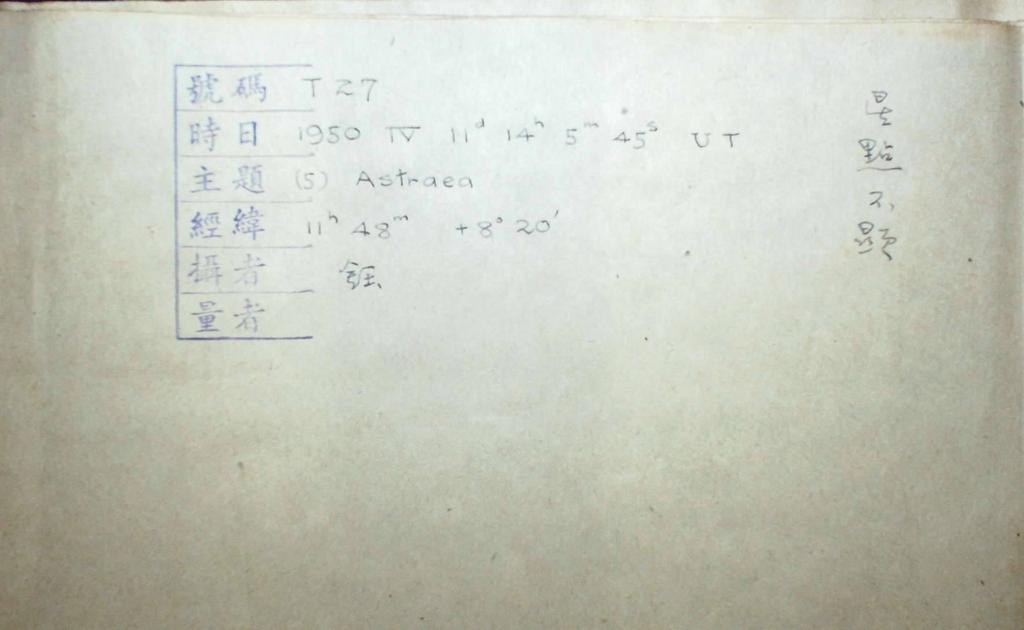 號碼 T 27
時日 1950 IV 11ᵈ 14ʰ 5ᵐ 45ˢ UT
主題 (5) Astraea
經緯 11ʰ 48ᵐ +8° 20′
攝者 鈺
量者
星點不顯